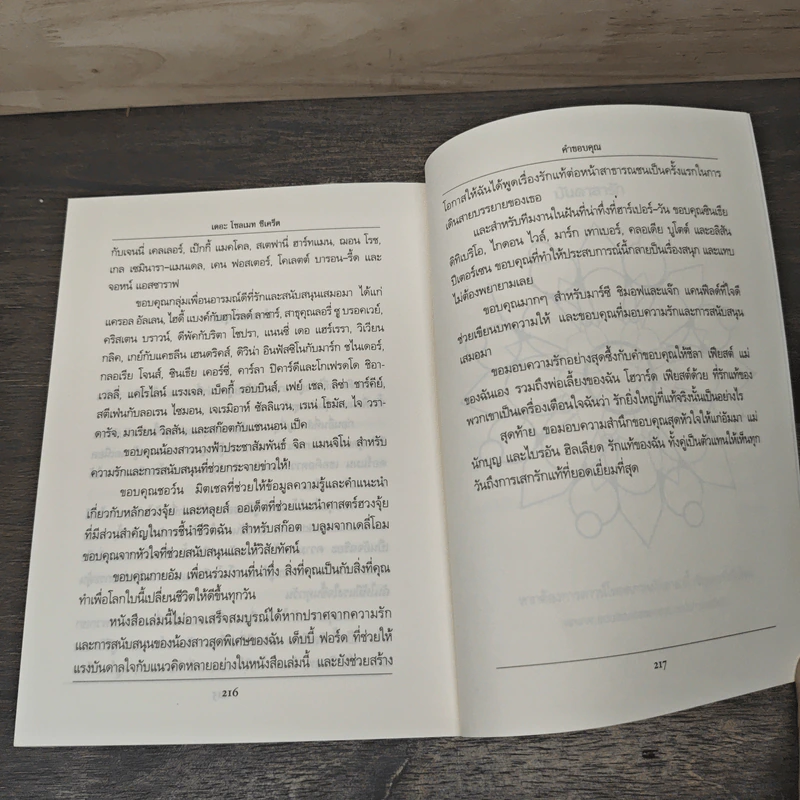 เดอะ โซลเมท ซีเคร็ต
กับเจนนี่ เคลเลอร์, เป๊กกี้ แมคโคล, สเตฟานี่ ฮาร์ทแมน, ฌอน โรช,
เกล เซมินารา-แมนเดล, เคน ฟอสเตอร์, โคเลตต์ บารอน-รี้ด และ
จอห์น์ แอสซาราฟ
ขอบคุณกลุ่มเพื่อนอารมณ์ดีที่รักและสนับสนุนเสมอมา ได้แก่
แครอล อัลเลน, ไฮดี้ แบงค์กับฮาโรลด์ ลาซาร์, สาธุคุณลอรี่ ซู บรอคเวย์,
คริสเตน บราวน์, ดีพัคกับริตา โชปรา, แนนซี่ เดอ แฮร์เรรา, วิเวียน
กลิค, เกย์กับแคธลีน เฮนดริคส์, ดิวิน่า อินฟัสซิโนกับมาร์ก ชไนเดอร์,
กลอเรีย โจนส์, ซินเธีย เคอร์ซี่, คาร์ลา ปิคาร์ดีและโกเฟรดโด ชิอา-
เวลลี่, แคโรไลน์ แรงเจล, เบ็คกี้ รอบบินส์, เฟย์ เชล, ลิซ่า ชาร์คีย์,
สตีเฟนกับลอเรน ไซมอน, เจเรมีอาห์ ซัลลิแวน, เรเน่ โธมัส, ไจ วรา-
ดารัจ, มาเรียน วิลสัน, และสก๊อตกับแชนนอน เป็ค
ขอบคุณน้องสาวนางฟ้าประชาสัมพันธ์ จิล แมนจิโน่ สำหรับ
ความรักและการสนับสนุนที่ช่วยกระจายข่าวให้!
ขอบคุณชอว์น มิตเชลที่ช่วยให้ข้อมูลความรู้และคำแนะนำ
เกี่ยวกับหลักฮวงจุ้ย และหลุยส์ ออเด็ตที่ช่วยแนะนำศาสตร์ฮวงจุ้ย
ที่มีส่วนสำคัญในการชี้นำชีวิตฉัน สำหรับสก๊อต บลูมจากเดลี่โอม
ขอบคุณจากหัวใจที่ช่วยสนับสนุนและให้วิสัยทัศน์
ขอบคุณกายอัม เพื่อนร่วมงานที่น่าทึ่ง สิ่งที่คุณเป็นกับสิ่งที่คุณ
ทำเพื่อโลกใบนี้เปลี่ยนชีวิตให้ดีขึ้นทุกวัน
หนังสือเล่มนี้ไม่อาจเสร็จสมบูรณ์ได้หากปราศจากความรัก
และการสนับสนุนของน้องสาวสุดพิเศษของฉัน เด็บบี้ ฟอร์ด ที่ช่วยให้
แรงบันดาลใจกับแนวคิดหลายอย่างในหนังสือเล่มนี้ และยังช่วยสร้าง
216
คำขอบคุณ
โอกาสให้ฉันได้พูดเรื่องรักแท้ต่อหน้าสาธารณชนเป็นครั้งแรกในการ
เดินสายบรรยายของเธอ
และสำหรับทีมงานในฝันที่น่าทึ่งที่ฮาร์เปอร์-วัน ขอบคุณซินเธีย
ดิทิเบริโอ, ไกดอน ไวล์, มาร์ก เทาเบอร์, คลอเดีย บูโตต์ และอลิสัน
ปีเตอร์เซน ขอบคุณที่ทำให้ประสบการณ์นี้กลายเป็นเรื่องสนุก และแทบ
ไม่ต้องพยายามเลย
ขอบคุณมากๆ สำหรับมาร์ซี ชิมอฟและแจ๊ก แคนฟิลด์ที่ใจดี
ช่วยเขียนบทความให้ และขอบคุณที่มอบความรักและการสนับสนุน
เสมอมา
ขอมอบความรักอย่างสุดซึ้งกับคำขอบคุณให้ชีลา เฟียสต์ แม่
ของฉันเอง รวมถึงพ่อเลี้ยงของฉัน โฮวาร์ด เฟียสต์ด้วย ที่รักแท้ของ
พวกเขาเป็นเครื่องเตือนใจฉันว่า รักยิ่งใหญ่ที่แท้จริงนั้นเป็นอย่างไร
สุดท้าย ขอมอบความสำนึกขอบคุณสุดหัวใจให้แก่อัมมา แม่
นักบุญ และไบรอัน ฮิลเลียด รักแท้ของฉัน ทั้งคู่เป็นตัวแทนให้เห็นทุก
วันถึงการเสกรักแท้ที่ยอดเยี่ยมที่สุด
217